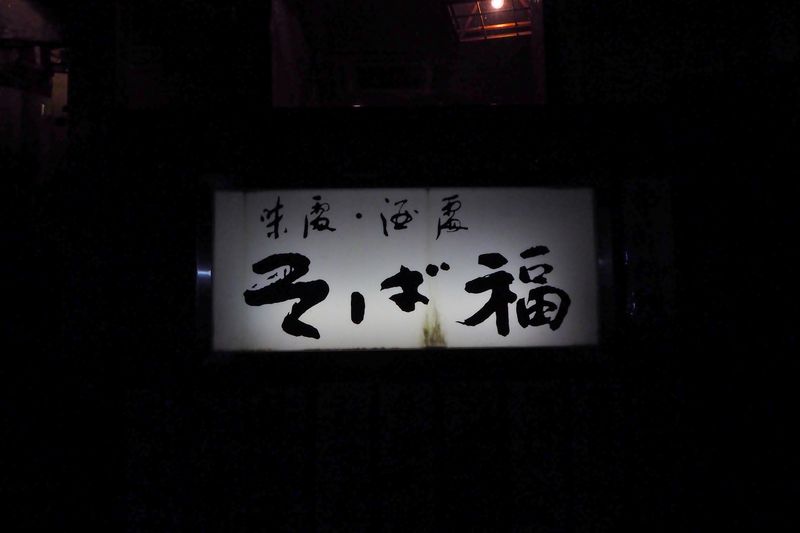 味處・酒處
そば福